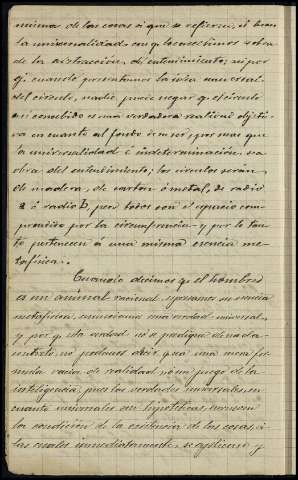 misma de las cosas a que se refieren, si bien
la universalidad con q. las concebimos es obra
de la abstracción, de entendimiento; así por
q. cuando presentamos la idea universal
del círculo, nadie puede negar q. el círculo
así concebido es una verdadera realidad objeti-
va en cuanto al fondo de su ser, por mas que
la universalidad é indeterminación, sea
obra del entendimiento; los círculos serán
de madera, de cartón ó metal, de radio
a ó radio b, pero todos son el espacio com-
prendido por la circunferencia y por lo tan-
to pertenecen á una misma esencia me-
tafísica.
Cuando decimos q. el hombre
es un animal racional, expresamos su esencia
metafísica, enunciamos una verdad universal,
y por q. esta verdad no se predique de nada
concreto, no podemos decir q. sea una mera fór-
mula vacía de realidad, ni un juego de la
inteligencia; pues las verdades universales, en
cuanto universales son hipotéticas, envuelven
la condición de la existencia de las cosas, á
las cuales inmediatamente se aplican y